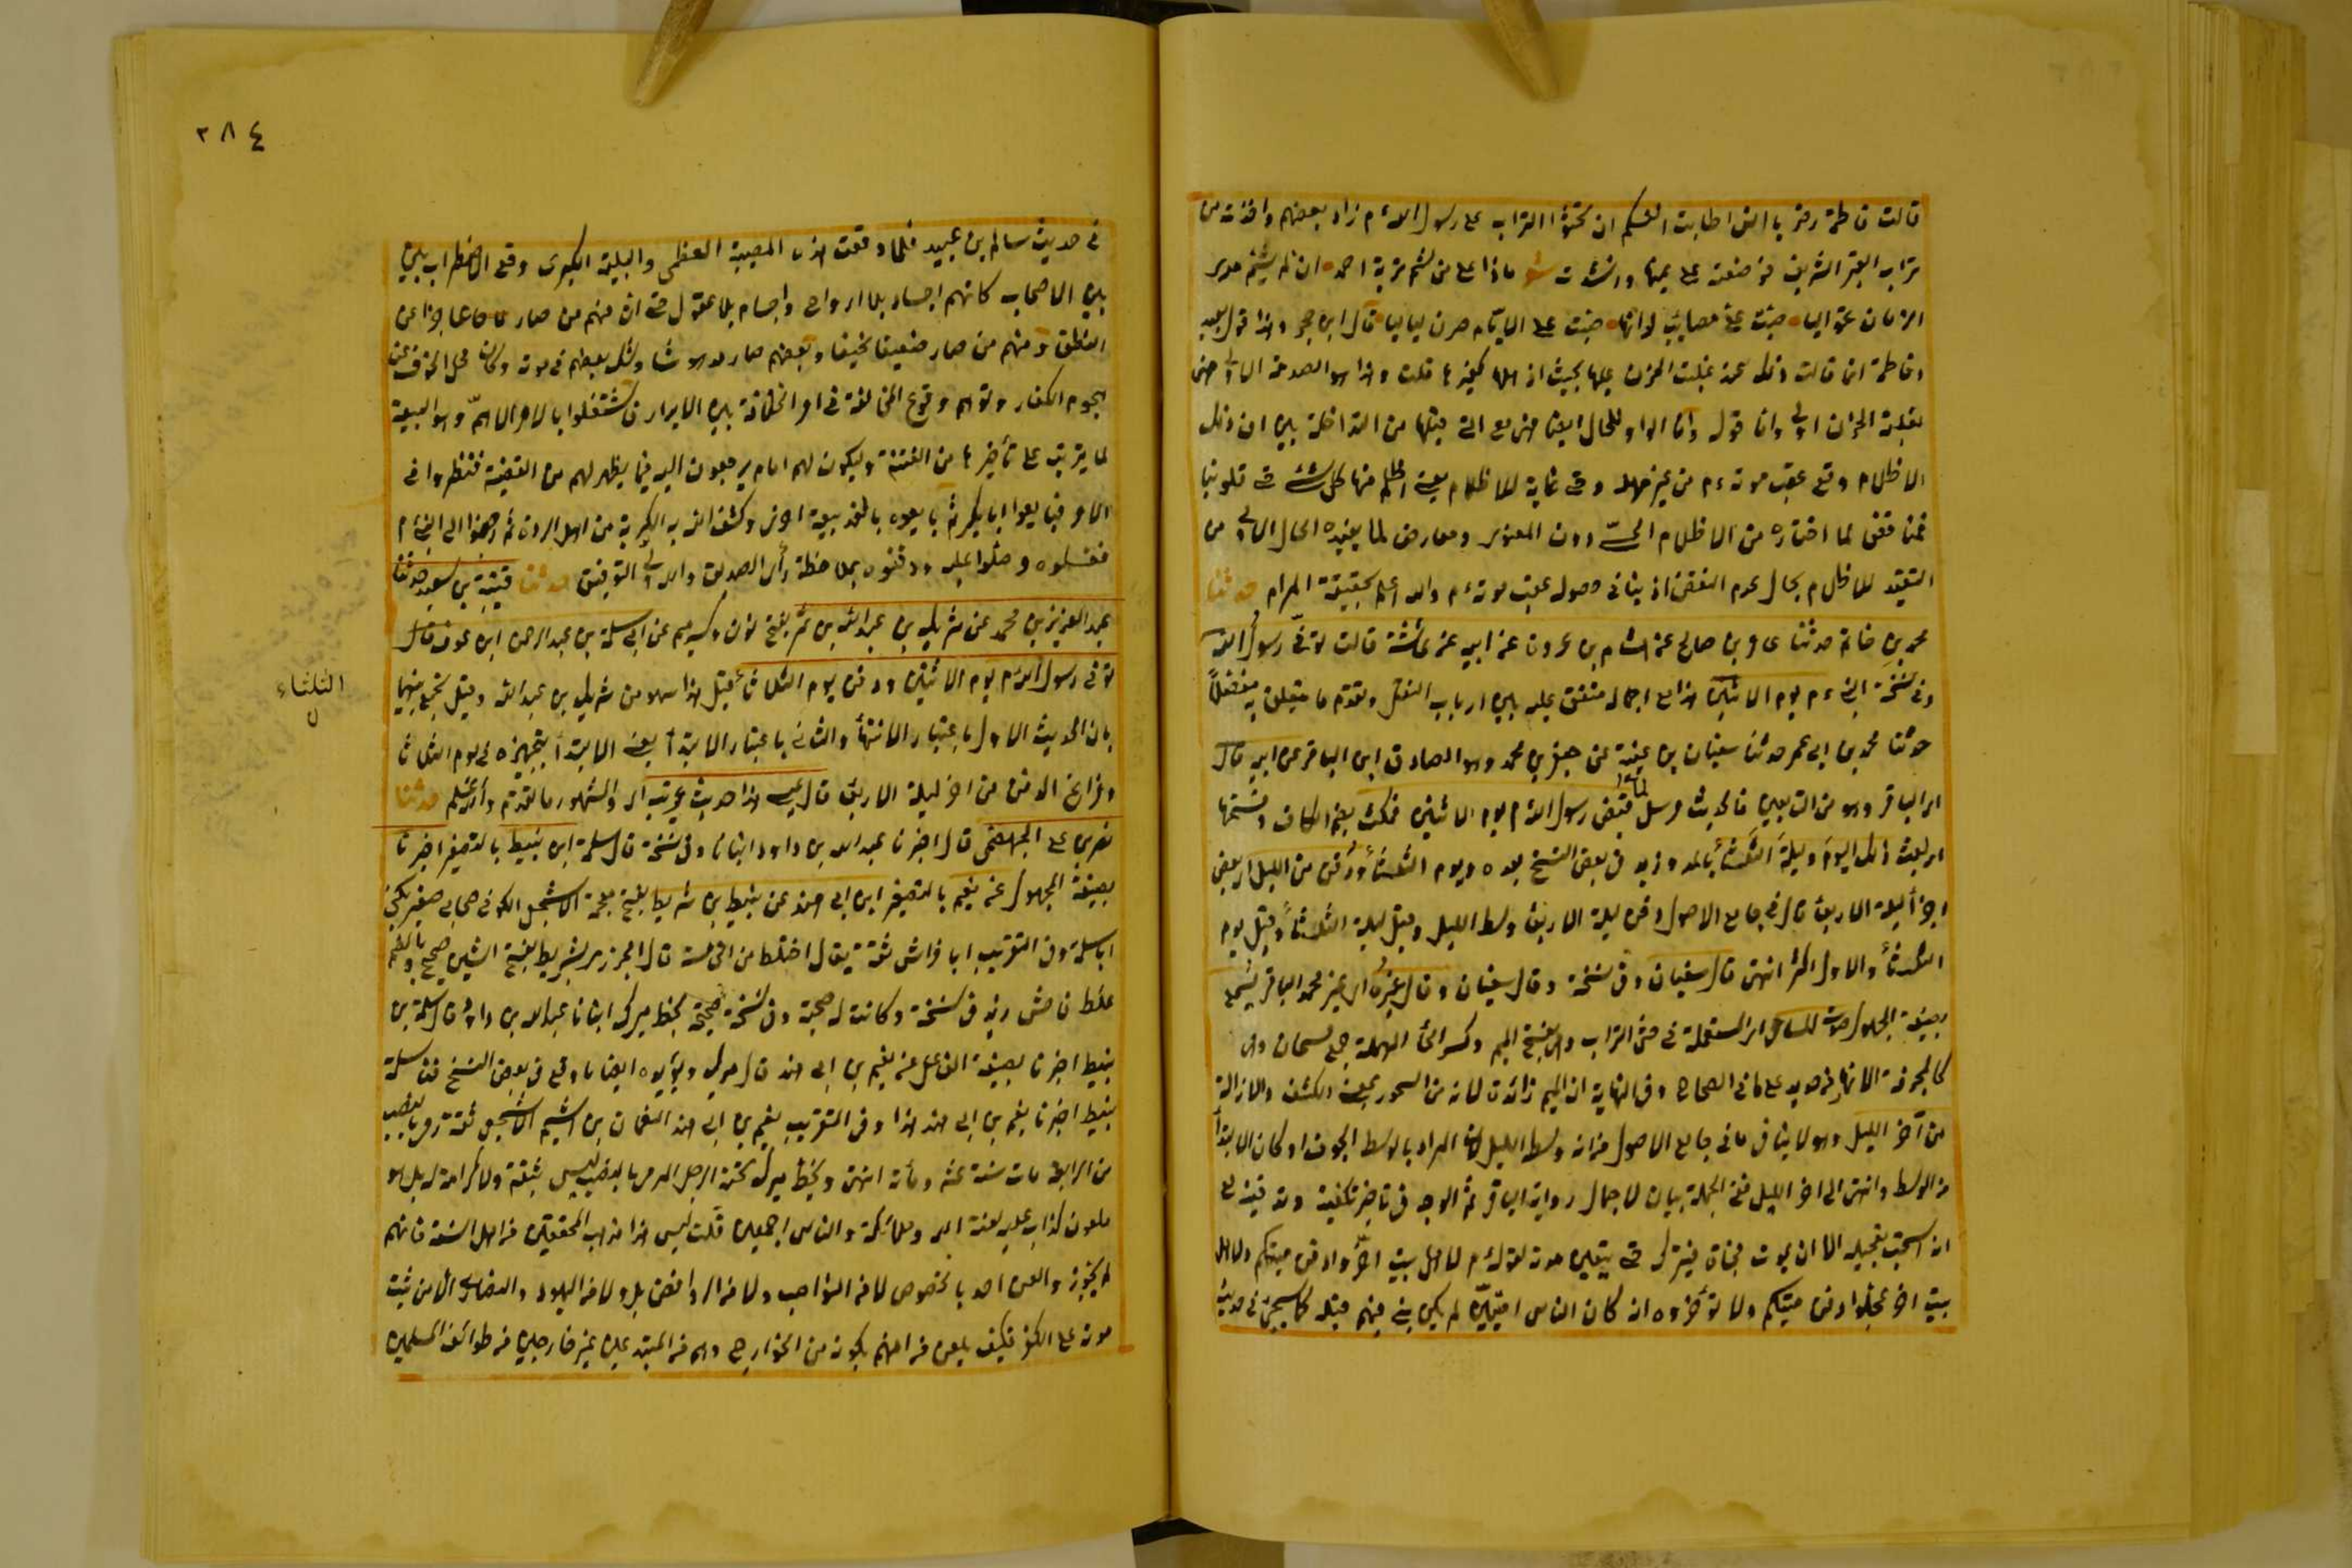 قالت فاطمة رضي يا انس اطابت انفسكم ان تحثوا التراب على رسول الله م زاد بعضهم واخذت من
تراب القبر الشريف فوضعته على عينها وانشدت شعر ماذا على من شم تربة احمد ان لا يشم مدى
الزمان غواليا صبت على مصائب لو انها صبت على الايام صرن لياليا قال ابن حجر وهذا قول
وفاطمة انما قالت ذلك عند غلبت الحزن عليها بحيث اذهلها كغيرها قلت وهذا هو
لغلبة الحزن اولى واما قوله وانا الواو للحال ايضا مع التي قبلها من المتداخلة بين ان ذلك
الاظلام وقع عقب موته ء م من غير مهلة وحتى غاية للاظلام يعني اظلم منها كل شئ حتى قلوبنا
فمناقض لما اختاره من الاظلام الحسي دون المعنوي ومعارض لما يفيده الحال الاولى من
التقييد للاظلام بحال عدم النفض اذ ينافي حصوله عقب موته م والله اعلم بحقيقة المرام حدثنا
محمد بن حاتم حدثنا عامر بن صالح عن هشام بن عروة عن ابيه عن عائشة قالت توفي رسول الله
وفي نسخة النبي ء م يوم الاثنين هذا مع اجماله متفق عليه بين ارباب النقل وتقدم ما يتعلق به مفصلا
حدثنا محمد بن ابي عمر حدثنا سفيان بن عيينة عن جعفر بن محمد وهو الصادق ابن الباقر عن ابيه قال
اي الباقر وهو من التابعين فالحديث مرسل لما قبض رسول الله م يوم الاثنين فمكث بضم الكاف وفتحها
اي لبث ذلك اليوم وليلة الثلثاء بالمد وزيد في بعض النسخ بعده ويوم الثلثاء ودفن من الليل اي بعض
اجزاء ليلة الاربعاء قال في جامع الاصول دفن ليلة الاربعاء وسط الليل وقيل ليلة الثلثاء وقيل يوم
الثلثاء والاول اكثر انتهى قال سفيان وفي نسخة وقال سفيان وقال غيره اي غير محمد الباقر يسمع
بصيغة المجهول صوت المساحي اي المستعملة في حثي التراب وهي بفتح الميم وكسر الحاء المهملة جمع مسحاة وهي
كالمجرفة الا انها من حديد على ما في الصحاح وفي النهاية ان الميم زائدة لانه من السحو بمعنى الكشف والازالة
من آخر الليل وهو لا ينافي ما في جامع الاصول من انه وسط الليل لان المراد بالوسط الجوف او كان الابتداء
من الوسط وانتهى الى آخر الليل ففي الجملة بيان لاجمال رواية الباقر ثم الوجه في تأخير تكفينه وتدفينه مع
انه استحب تعجيله الا ان يموت فجأة فيترك حتى يتيقن موته لقوله م لاهل بيت اخروا دفن ميتكم ولاهل
بيت آخر عجلوا دفن ميتكم ولا تؤخروه انه كان الناس اميين لم يكن نبي فيهم قبله كما سيجيئ في حديث
٢٨٤
في حديث سالم بن عبيد فلما وقعت هذه المصيبة العظمى والبلية الكبرى وقع الاضطراب بين
بين الاصحاب كانهم اجساد بلا ارواح واجسام بلا عقول حتى ان منهم من صار عاجزا عن
النطق ومنهم من صار ضعيفا نحيفا وبعضهم صار مدهوشا وشك بعضهم في موته وكان محل الخوف عن
هجوم الكفار وتوهم وقوع المخالفة في امر الخلافة بين الابرار فاشتغلوا بالامر الاهم وهو البيعة
لما يترتب على تأخيرها من الفتنة وليكون لهم امام يرجعون اليه فيما يظهر لهم من القضية فنظروا في
الامر فبايعوا ابا بكر ثم بايعوه بالغد بيعة اخرى وكشف الله به الكربة من اهل الردة ثم رجعوا الى النبي م
فغسلوه وصلوا عليه ودفنوه بملاحظة رأي الصديق والله ولي التوفيق حدثنا قتيبة بن سعيد حدثنا
عبد العزيز بن محمد عن شريك بن عبد الله بن نمر بفتح نون وكسر ميم عن ابي سلمة بن عبد الرحمن ابن عوف قال
توفي رسول الله م يوم الاثنين ودفن يوم الثلاثاء قيل هذا سهو من شريك بن عبد الله وقيل يجمع بينهما
بان الحديث الاول باعتبار الانتهاء والثاني باعتبار الابتداء يعني الابتداء بتجهيزه في يوم الثلاثاء
الثلثاء
وفراغ الدفن من آخر ليلة الاربعاء قال ابو عيسى هذا حديث غريب اي والمشهور ما تقدم والله اعلم حدثنا
نصر بن علي الجهضمي قال اخبرنا عبد الله بن داود انبأنا وفي نسخة قال سلمة ابن نبيط بالتصغير اخبرنا
بصيغة المجهول عن نعيم بالتصغير ابن ابي هند عن نبيط بن شريط بفتح معجمة الاشجعي الكوفي صحابي صغير يكنى
ابا سلمة وفي التقريب ابا فراس ثقة يقال اختلط من الخامسة قال الجزري شريط بفتح الشين صحيح وبالضم
غلط فاحش زيد في نسخة وكانت له صحبة وفي نسخة صحيحة بخط ميرك انبانا عبد الله بن داود قال سلمة بن
نبيط اخبرنا بصيغة الفاعل عن نعيم بن ابي هند قال ميرك ويؤيده ايضا ما وقع في بعض النسخ ثنا سلمة
نبيط اخبرنا نعيم بن ابي هند هذا وفي التقريب نعيم بن ابي هند النعمان بن اشيم الاشجعي ثقة رمي بالنصب
من الرابعة مات سنة عشر ومأة انتهى وبخط ميرك تحته الرجل المرمي بالنصب ليس بثقة ولا كرامة له بل هو
ملعون كذاب عليه لعنة الله وملائكته والناس اجمعين قلت ليس هذا مذهب المحققين من اهل السنة فانهم
لم يجوزوا لعن احد بالخصوص لا من النواصب ولا من الروافض بل ولا من اليهود والنصارى الا من ثبت
موته على الكفر فكيف بلعن من اتهم بكونه من الخوارج وهم من المبتدعين غير خارجين من طوائف المسلمين